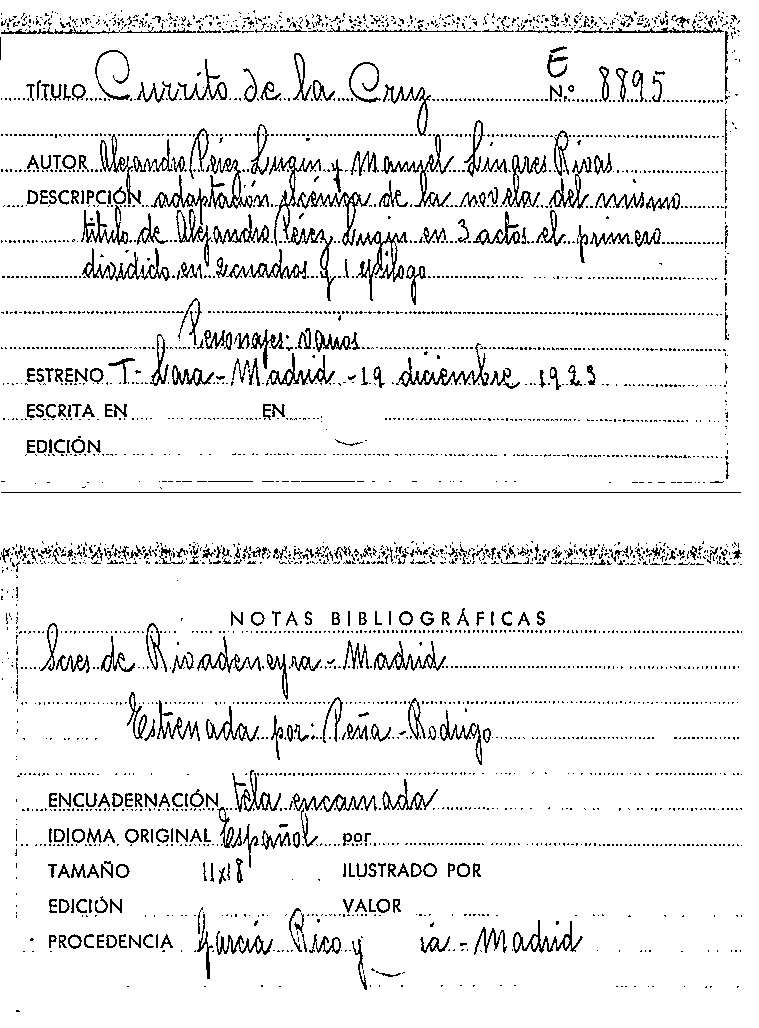 E
TÍTULO Currito de la Cruz N.º 8895
AUTOR Alejandro Pérez Lugin y Manuel Linares Rivas
DESCRIPCIÓN adaptación escénica de la novela del mismo
titulo de Alejandro Pérez Lugin en 3 actos el primero
dividido en 2 cuadros y 1 epílogo
Personajes: varios
ESTRENO T- Lara - Madrid - 19 diciembre 1923
ESCRITA EN EN
EDICIÓN
NOTAS BIBLIOGRÁFICAS
Scres de Rivadeneyra - Madrid
Estrenada por: Peña - Rodrigo
ENCUADERNACIÓN tela encarnada
IDIOMA ORIGINAL Español por
TAMAÑO 11x18 ILUSTRADO POR
EDICIÓN VALOR
PROCEDENCIA García Rico y ia - Madrid